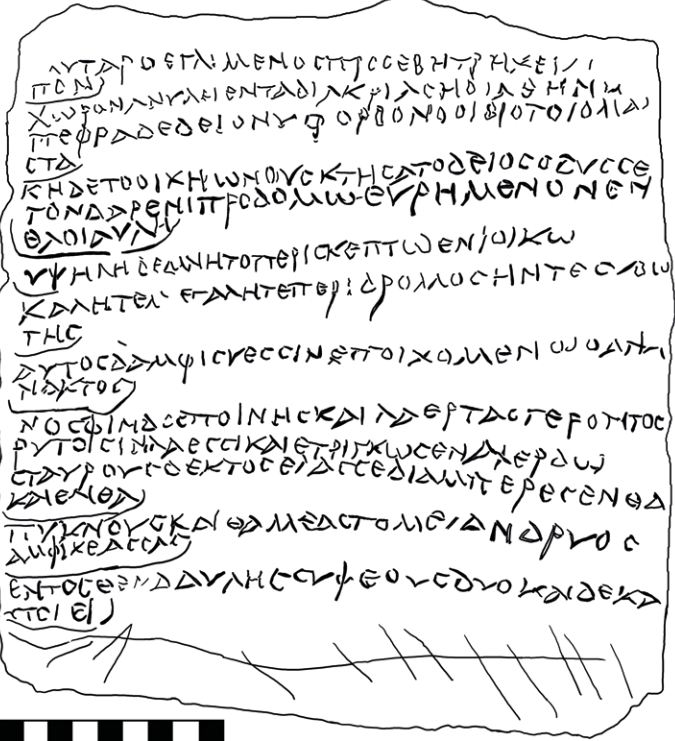 ΑΥΤΑΡΟΕΓΛΙΜΕΝΟCΠΡCCΕΒΗΤΡΗΧΕΙ
ΠΟΝ
ΧΩΡΟΝΑΝΥΛΗΕΝΤΑΔΙΑΚΡΙΑCΗΟΙΑΘΗΝΗ
ΠΕΦΡΑΔΕΔΕΙΟΝΥΦΟΡΒΟΝΟΟΙΒΙΟΤΟΙΟΛΙΑ
CΤΑ
ΚΗΔΕΤΟΟΙΚΗΩΝΟΥCΚΤΗCΑΤΟΔΕΙΟCΟΔΥCCΕ
ΤΟΝΔΑΡΕΝΙΠΡΟΔΟΜΩΕΥΡΗΜΕΝΟΝΕΝ
ΘΑΟΙΑΥΛΗ
ΥΨΗΛΗΔΕΔΜΗΤΟΠΕΡΙCΚΕΠΤΩΕΝΙΟΙΚΩ
ΚΑΛΗΤΕΜΕΓΑΛΗΤΕΠΕΡΙΔΡΟΜΟCΗΝΤΕCΥΒΩ
ΤΗC
ΑΥΤΟCΔΑΜΦΙCΥΕCCΙΝΕΠΟΙΧΟΜΕΝΩΟΑΝΑ
ΝΑΚΤΟC
ΝΟCΦΙΜΔΕCΠΟΙΝΗCΚΑΙΛΑΕΡΤΑCΓΕΡΟΝΤΟC
ΡΥΤΟΙCΙΝΛΑΕCCΙΚΑΙΕΤΡΙΓΚΩCΕΝΑΧΕΡΔΩ
CΤΑΥΡΟΥCΔΕΚΤΟCΕΛΑCCΕΔΙΑΜΠΕΡΕCΕΝΘΑ
ΚΑΙΕΝΘΑ
ΠΥΚΝΟΥCΚΑΙΘΑΜΕΑCΤΟΜΕΛΑΝΔΡΥΟC
ΑΜΦΙΚΕΑCCΑC
ΕΝΤΟCΘΕΝΔΑΥΛΗCCΥΨΕΟΥCΔΥΟΚΑΙΔΕΚΑ
ΠΟΙΕΙ